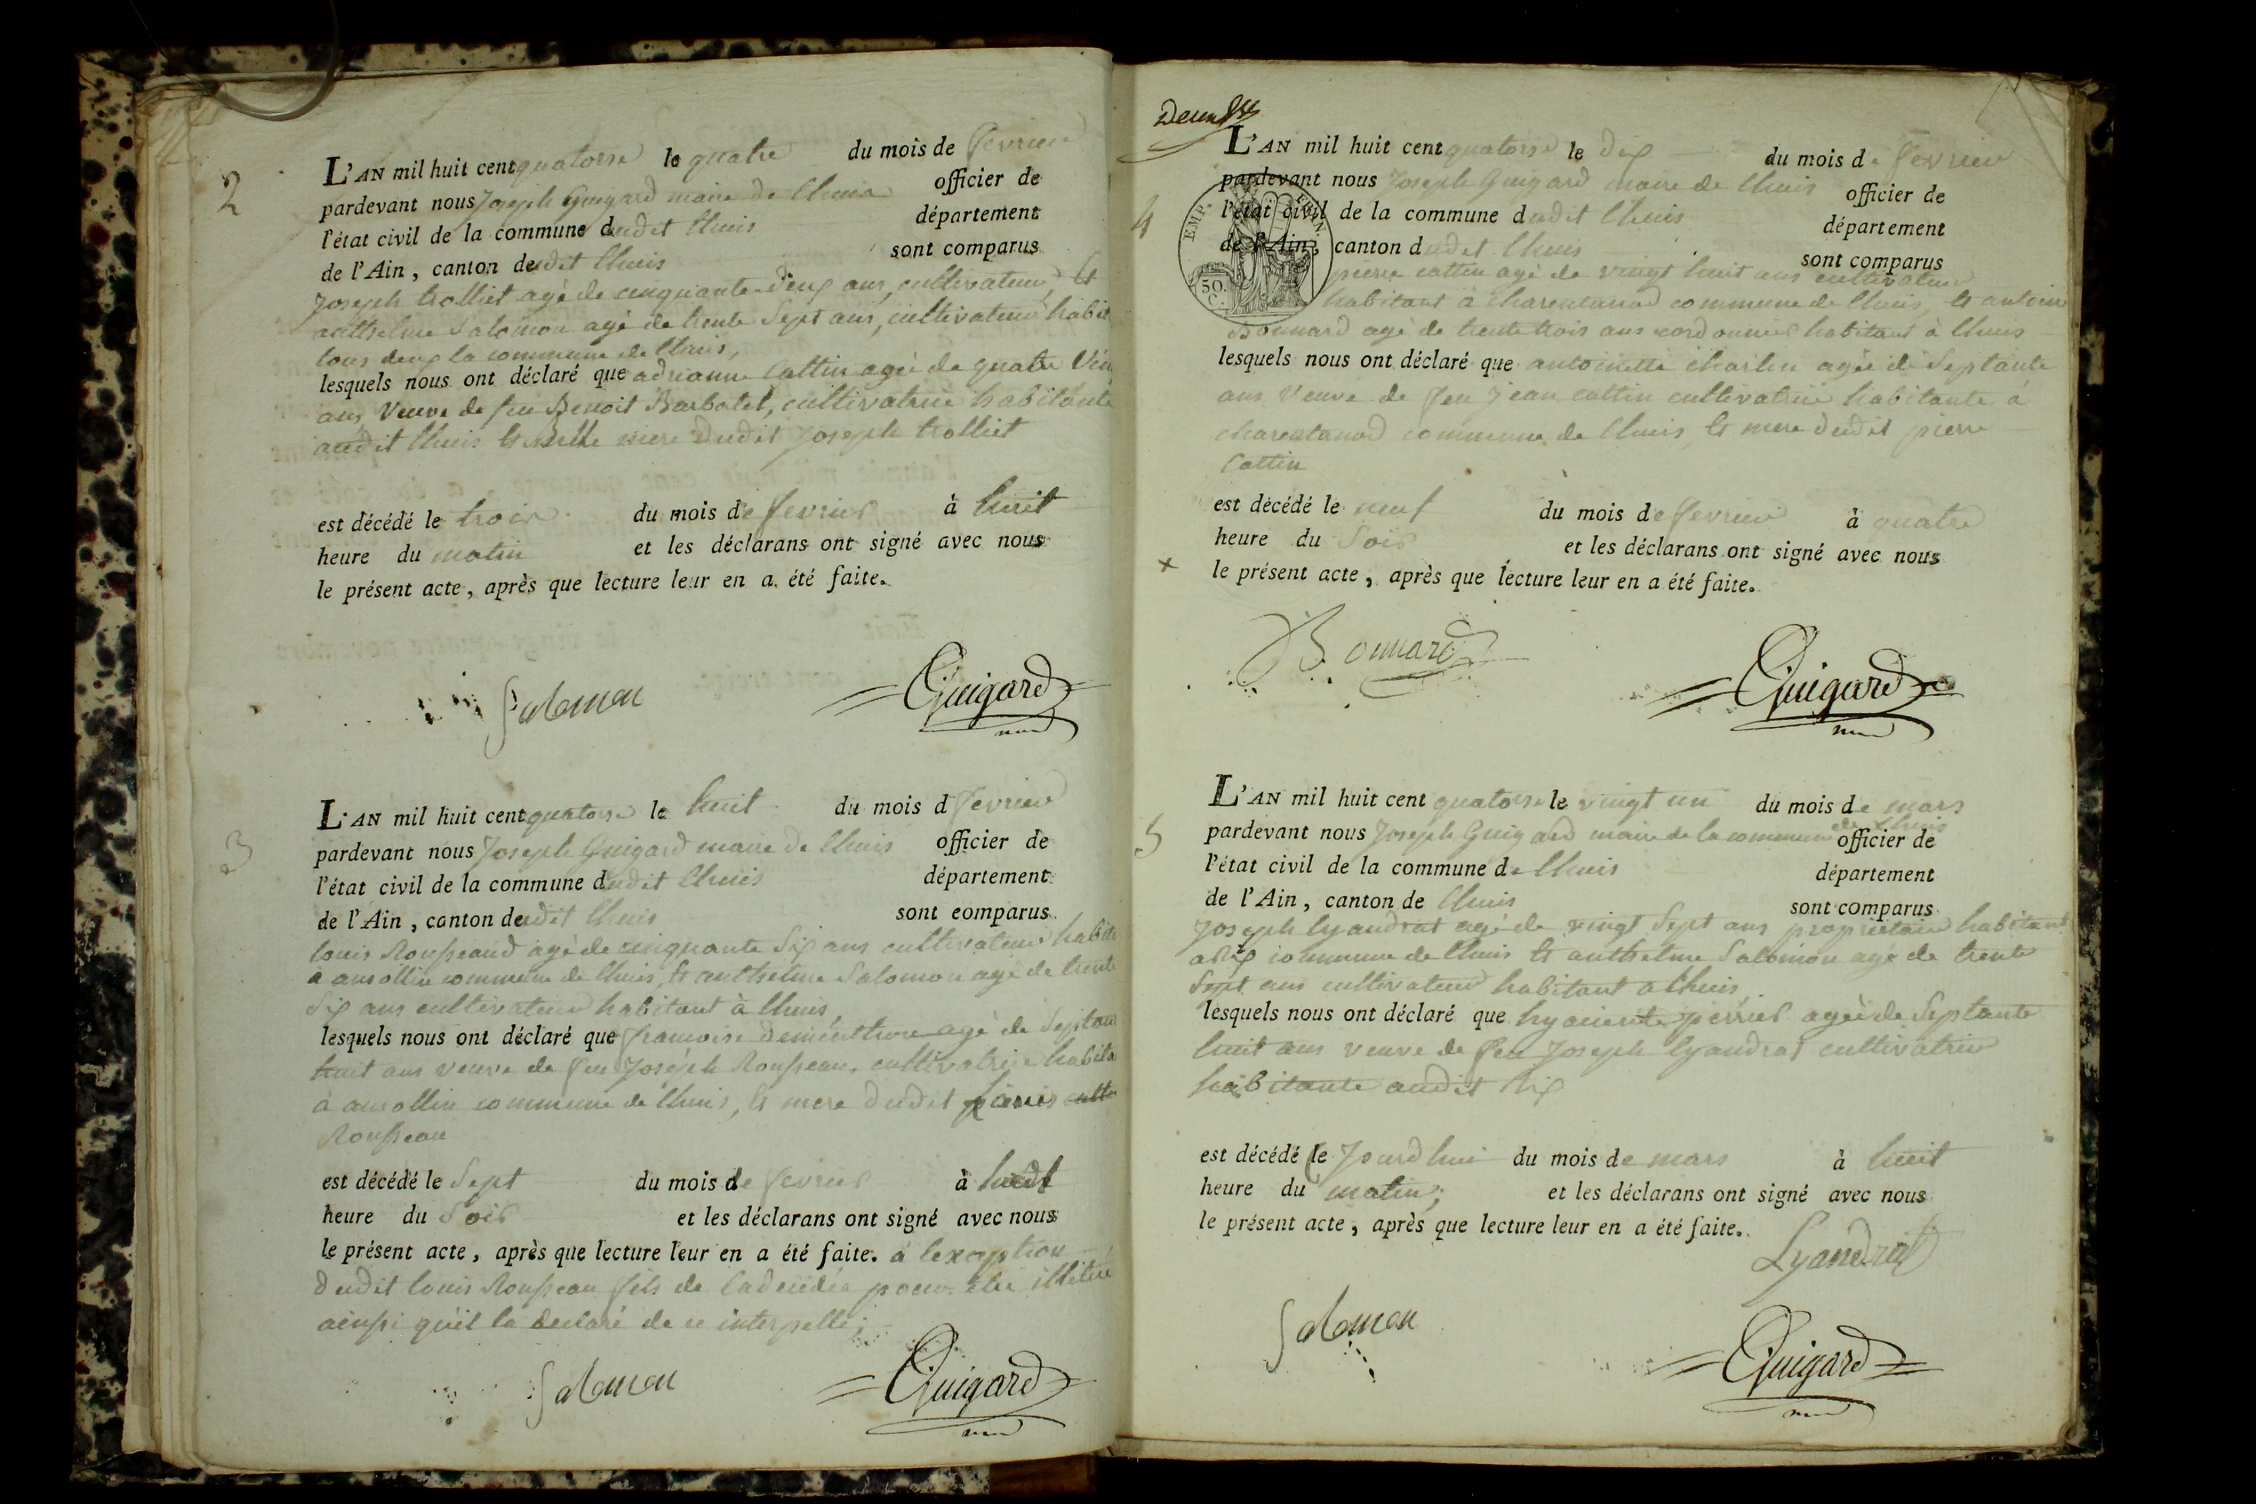 2
L'AN mil huit cent quatorse le quatre du mois de fevrier
pardevant nous Joseph Guigard maire de Lhuis officier de
l'état civil de la commune dudit Lhuis département
de l'Ain, canton dudit Lhuis sont comparus
Joseph trolliet agé de cinquante deux ans, cultivateur, Et
anthelme Salomon agé de trente Sept ans, cultivateur habit
tous deux la commune de Lhuis,
lesquels nous ont déclaré que adrianne Cattin agée de quatre Vin
ans, Veuve de feu Benoit Barbolet, cultivatrice habitante
audit Lhuis Et belle mere Dudit Joseph trolliet
est décédé le trois du mois de fevrier à huit
heure du matin et les déclarans ont signé avec nous
le présent acte, après que lecture leur en a été faite.
Salomon Guigard
3
L'AN mil huit cent quatorse le huit du mois d fevrier
pardevant nous Joseph Guigard maire de Lhuis officier de
l'état civil de la commune dudit Lhuis département
de l'Ain, canton dudit Lhuis sont comparus
Louis Rousseaud agé de cinquante Six ans cultivateur habit
a ansollin commune de Lhuis, Et anthelme Salomon agé de trente
Six ans cultivateur habitant à Lhuis,
lesquels nous ont déclaré que francoise Dementhon agé de Septan
huit ans veuve de feu Joseph Rousseau, cultivatrice habita
à ansollin commune de Lhuis, Et mere dudit Louis
Rousseau
est décédé le Sept du mois de fevrier à huit
heure du Soir et les déclarans ont signé avec nous
le présent acte, après que lecture leur en a été faite. à l'exception
dudit Louis Rousseau fils de la decedée pour etre illitéré
ainssi qu'il la declaré de ce interpellé;
Salomon Guigard
Deux
4
L'AN mil huit cent quatorse le dix du mois de fevrier
pardevant nous Joseph Guigard maire de Lhuis officier de
l'état civil de la commune dudit Lhuis département
de l'Ain, canton dudit Lhuis sont comparus
pierre cattin agé de vingt huit ans cultivateur
habitant à charentanod commune de Lhuis, Et antoine
Bonnard agé de trente trois ans cordonnier habitant à Lhuis
lesquels nous ont déclaré que antoinette charlin agée de Septante
ans Veuve de feu Jean cattin cultivatrice habitante à
charentanod commune de Lhuis, Et mere dudit pierre
Cattin
est décédé le neuf du mois de fevrier à quatre
heure du Soir et les déclarans ont signé avec nous
le présent acte, après que lecture leur en a été faite.
Bonnard Guigard
5
L'AN mil huit cent quatorse le vingt un du mois de mars
pardevant nous Joseph Guigard maire de la commune de Lhuis officier de
l'état civil de la commune de Lhuis département
de l'Ain, canton de Lhuis sont comparus
Joseph Lyandrat agé de vingt Sept ans proprietaire habitant
a Rix commune de Lhuis Et anthelme Salomon agé de trente
Sept ans cultivateur habitant a Lhuis
lesquels nous ont déclaré que hyacinte perrier agée de Septante
huit ans veuve de feu Joseph Lyandrat cultivatrice
habitante audit Rix
est décédé le Jourdhui du mois de mars à huit
heure du matin; et les déclarans ont signé avec nous
le présent acte, après que lecture leur en a été faite.
Lyandrat
Salomon Guigard